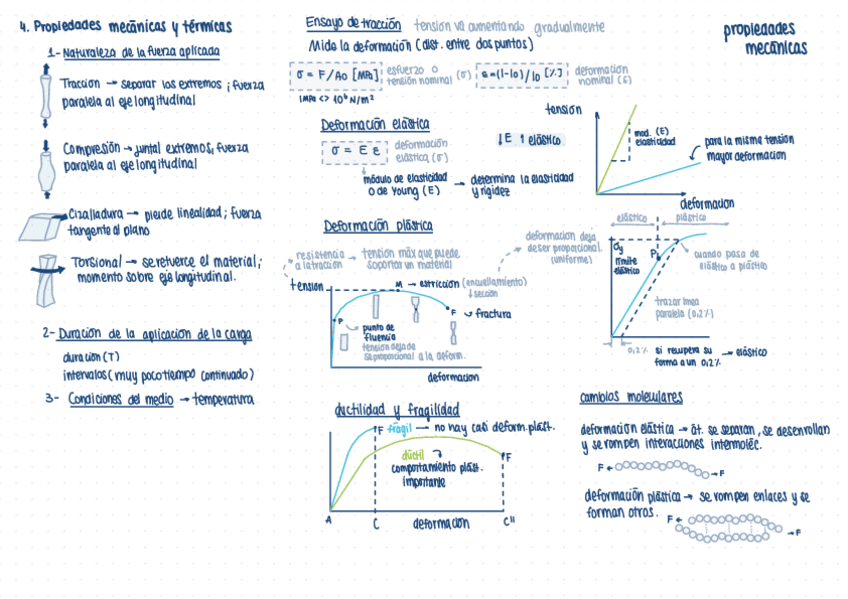 4. Propiedades mecánicas y térmicas
1- Naturaleza de la fuerza aplicada
Tracción → separar los extremos ; fuerza
paralela al eje longitudinal
Compresión → juntar extremos, fuerza
paralela al eje longitudinal
Cizalladura → pierde linealidad ; fuerza
tangente al plano
Torsional → se retuerce el material ;
momento sobre eje longitudinal.
2- Duración de la aplicación de la carga
duración (T)
intervalos (muy poco tiempo continuado)
3- Condiciones del medio → temperatura
Ensayo de tracción tensión va aumentando gradualmente
Mide la deformación (dist. entre dos puntos)
σ = F/A₀ [MPa] esfuerzo o
tensión nominal (σ)
ε = (l-l₀)/l₀ [%] deformación
nominal (ε)
1MPa <> 10⁶ N/m²
Deformación elástica
σ = E ε deformación
elástica (σ)
↓E ↑ elástico
módulo de elasticidad
o de Young (E) → determina la elasticidad
y rigidez
Deformación plástica
resistencia
a la tracción → tensión máx que puede
soportar un material
tensión
M → estricción (encuellamiento)
↓ sección
P
F → fractura
punto de
fluencia
tensión deja de
ser proporcional a la deform.
deformacion
ductilidad y fragilidad
F frágil → no hay casi deform. plást.
dúctil
comportamiento plást.
importante
F
A
C
deformación
C"
propiedades
mecánicas
tensión
mod. (E)
elasticidad
para la misma tensión
mayor deformación
deformacion
elástico
plástico
deformacion deja
de ser proporcional.
(uniforme)
σy
límite
elástico
P
cuando pasa de
elástico a plástico
trazar línea
paralela (0,2%)
0,2% si recupera su
forma a un 0,2% → elástico
cambios moleculares
deformación elástica → át. se separan, se desenrollan
y se rompen interacciones intermoléc.
F
F
deformación plástica → se rompen enlaces y se
forman otros.
F
F